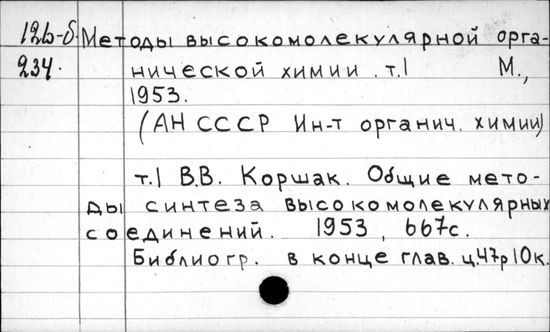 12b-б. Методы высокомолекулярной орга-
234. нической химии. т.1 М.,
1953.
(АН СССР Ин-т органич. химии)
т.1 В.В. Коршак. Общие мето-
ды синтеза высокомолекулярных
соединений. 1953, 667с.
Библиогр. в конце глав. ц.47р10к.